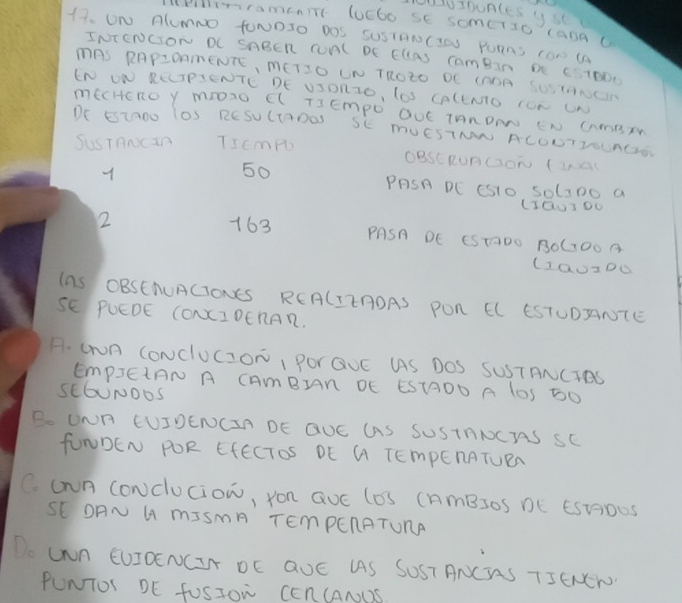 luego se sometió cada
17. UN ALUMNO FUNDIO DOS SUSTANCIAS PURAS CON LA
INTENCION DE SABER CUAL DE ELLAS CAMBIA DE ESTADO
MAS RAPIDAMENTE, METIO UN TROZO DE CADA SUSTANCIA
EN UN RECIPIENTE DE VIDRIO, LOS CALENTO CON UN
MECHERO Y MIDIO EL TIEMPO QUE TARDAN EN CAMBIAR
DE ESTADO LOS RESULTADOS SE MUESTRAN A CONTINUACION
SUSTANCIA TIEMPO OBSERVACION FINAL
1 50 PASA DE ESTO SOLIDO A
LIQUIDO
2 163 PASA DE ESTADO BOLIDO A
LIQUIDO
LAS OBSERVACIONES REALIZADAS POR EL ESTUDIANTE
SE PUEDE CONCIDERAR.
A. UNA CONCLUCION, POR QUE LAS DOS SUSTANCIAS
EMPIEZAN A CAMBIAR DE ESTADO A LOS 50
SEGUNDOS
B. UNA EVIDENCIA DE QUE LAS SUSTANCIAS SE
FUNDEN POR EFECTOS DE LA TEMPERATURA
C. UNA CONCLUCION, POR QUE LOS CAMBIOS DE ESTADOS
SE DAN LA MISMA TEMPERATURA
D. UNA EVIDENCIA DE QUE LAS SUSTANCIAS TIENEN
PUNTOS DE FUSION CERCANOS